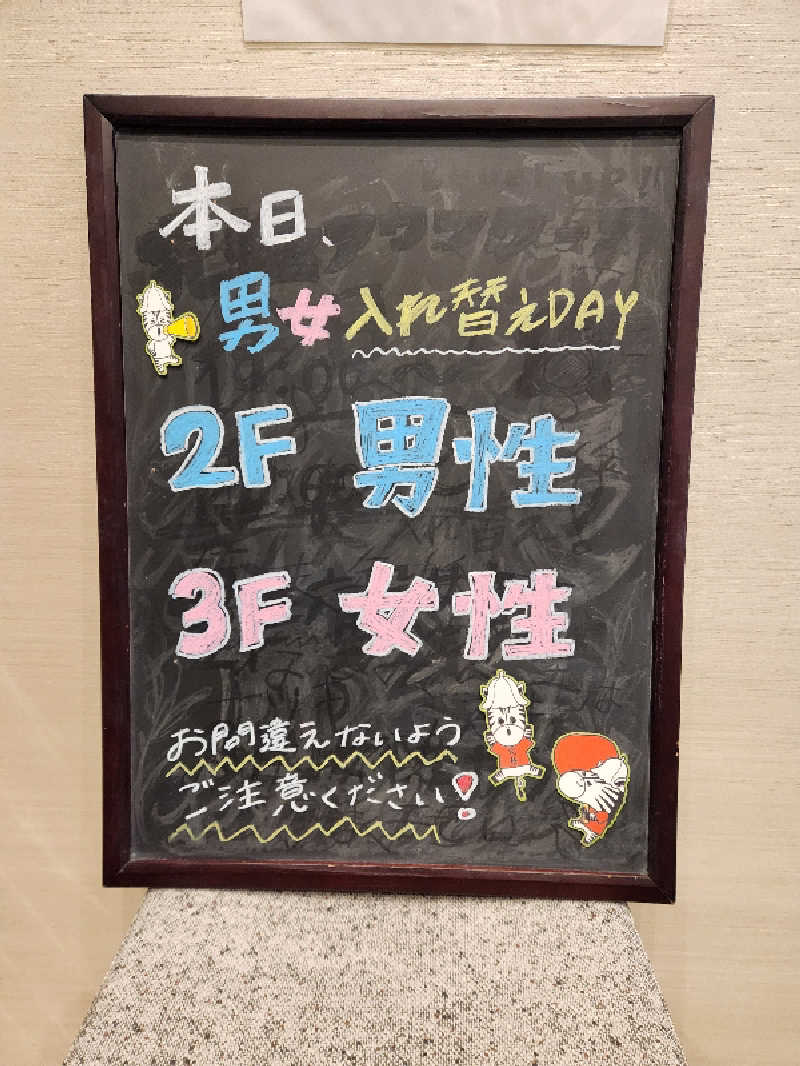 本日、
男女入れ替えDAY
2F 男性
3F 女性
お間違えないよう
ご注意ください!